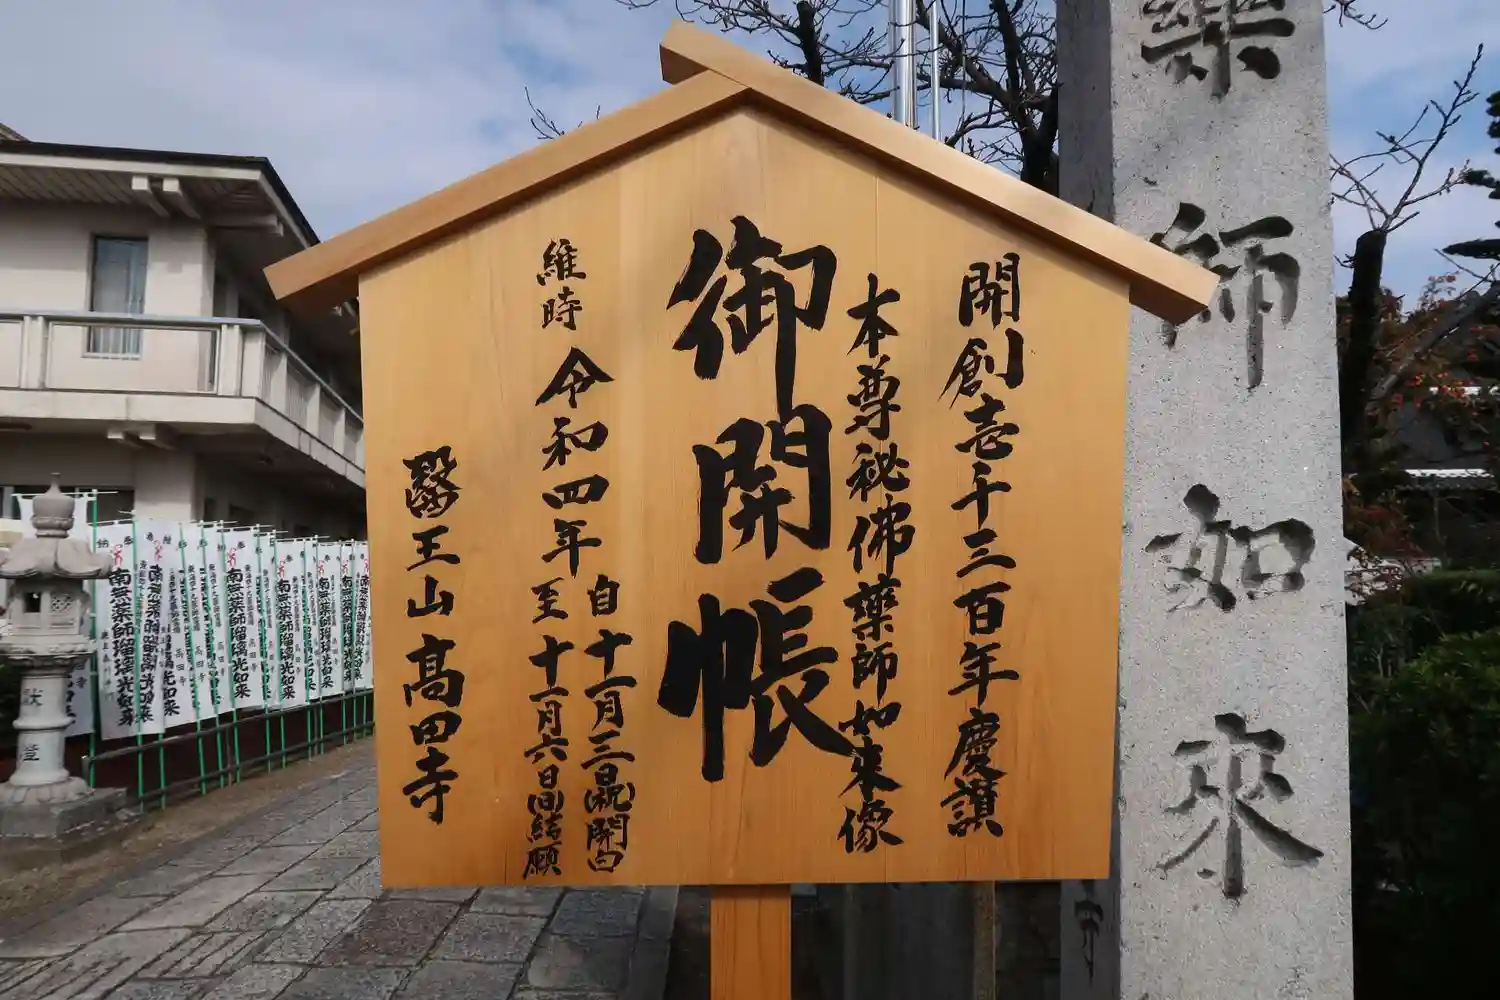 開創壱千三百年慶讃
本尊秘佛薬師如来像
御開帳
維時 令和四年
自十一月三日(祝)開白
至十一月六日(日)結願
醫王山 髙田寺
薬師如來
南無薬師瑠璃光如来
南無薬師瑠璃光如来
南無薬師瑠璃光如来
南無薬師瑠璃光如来
献
燈